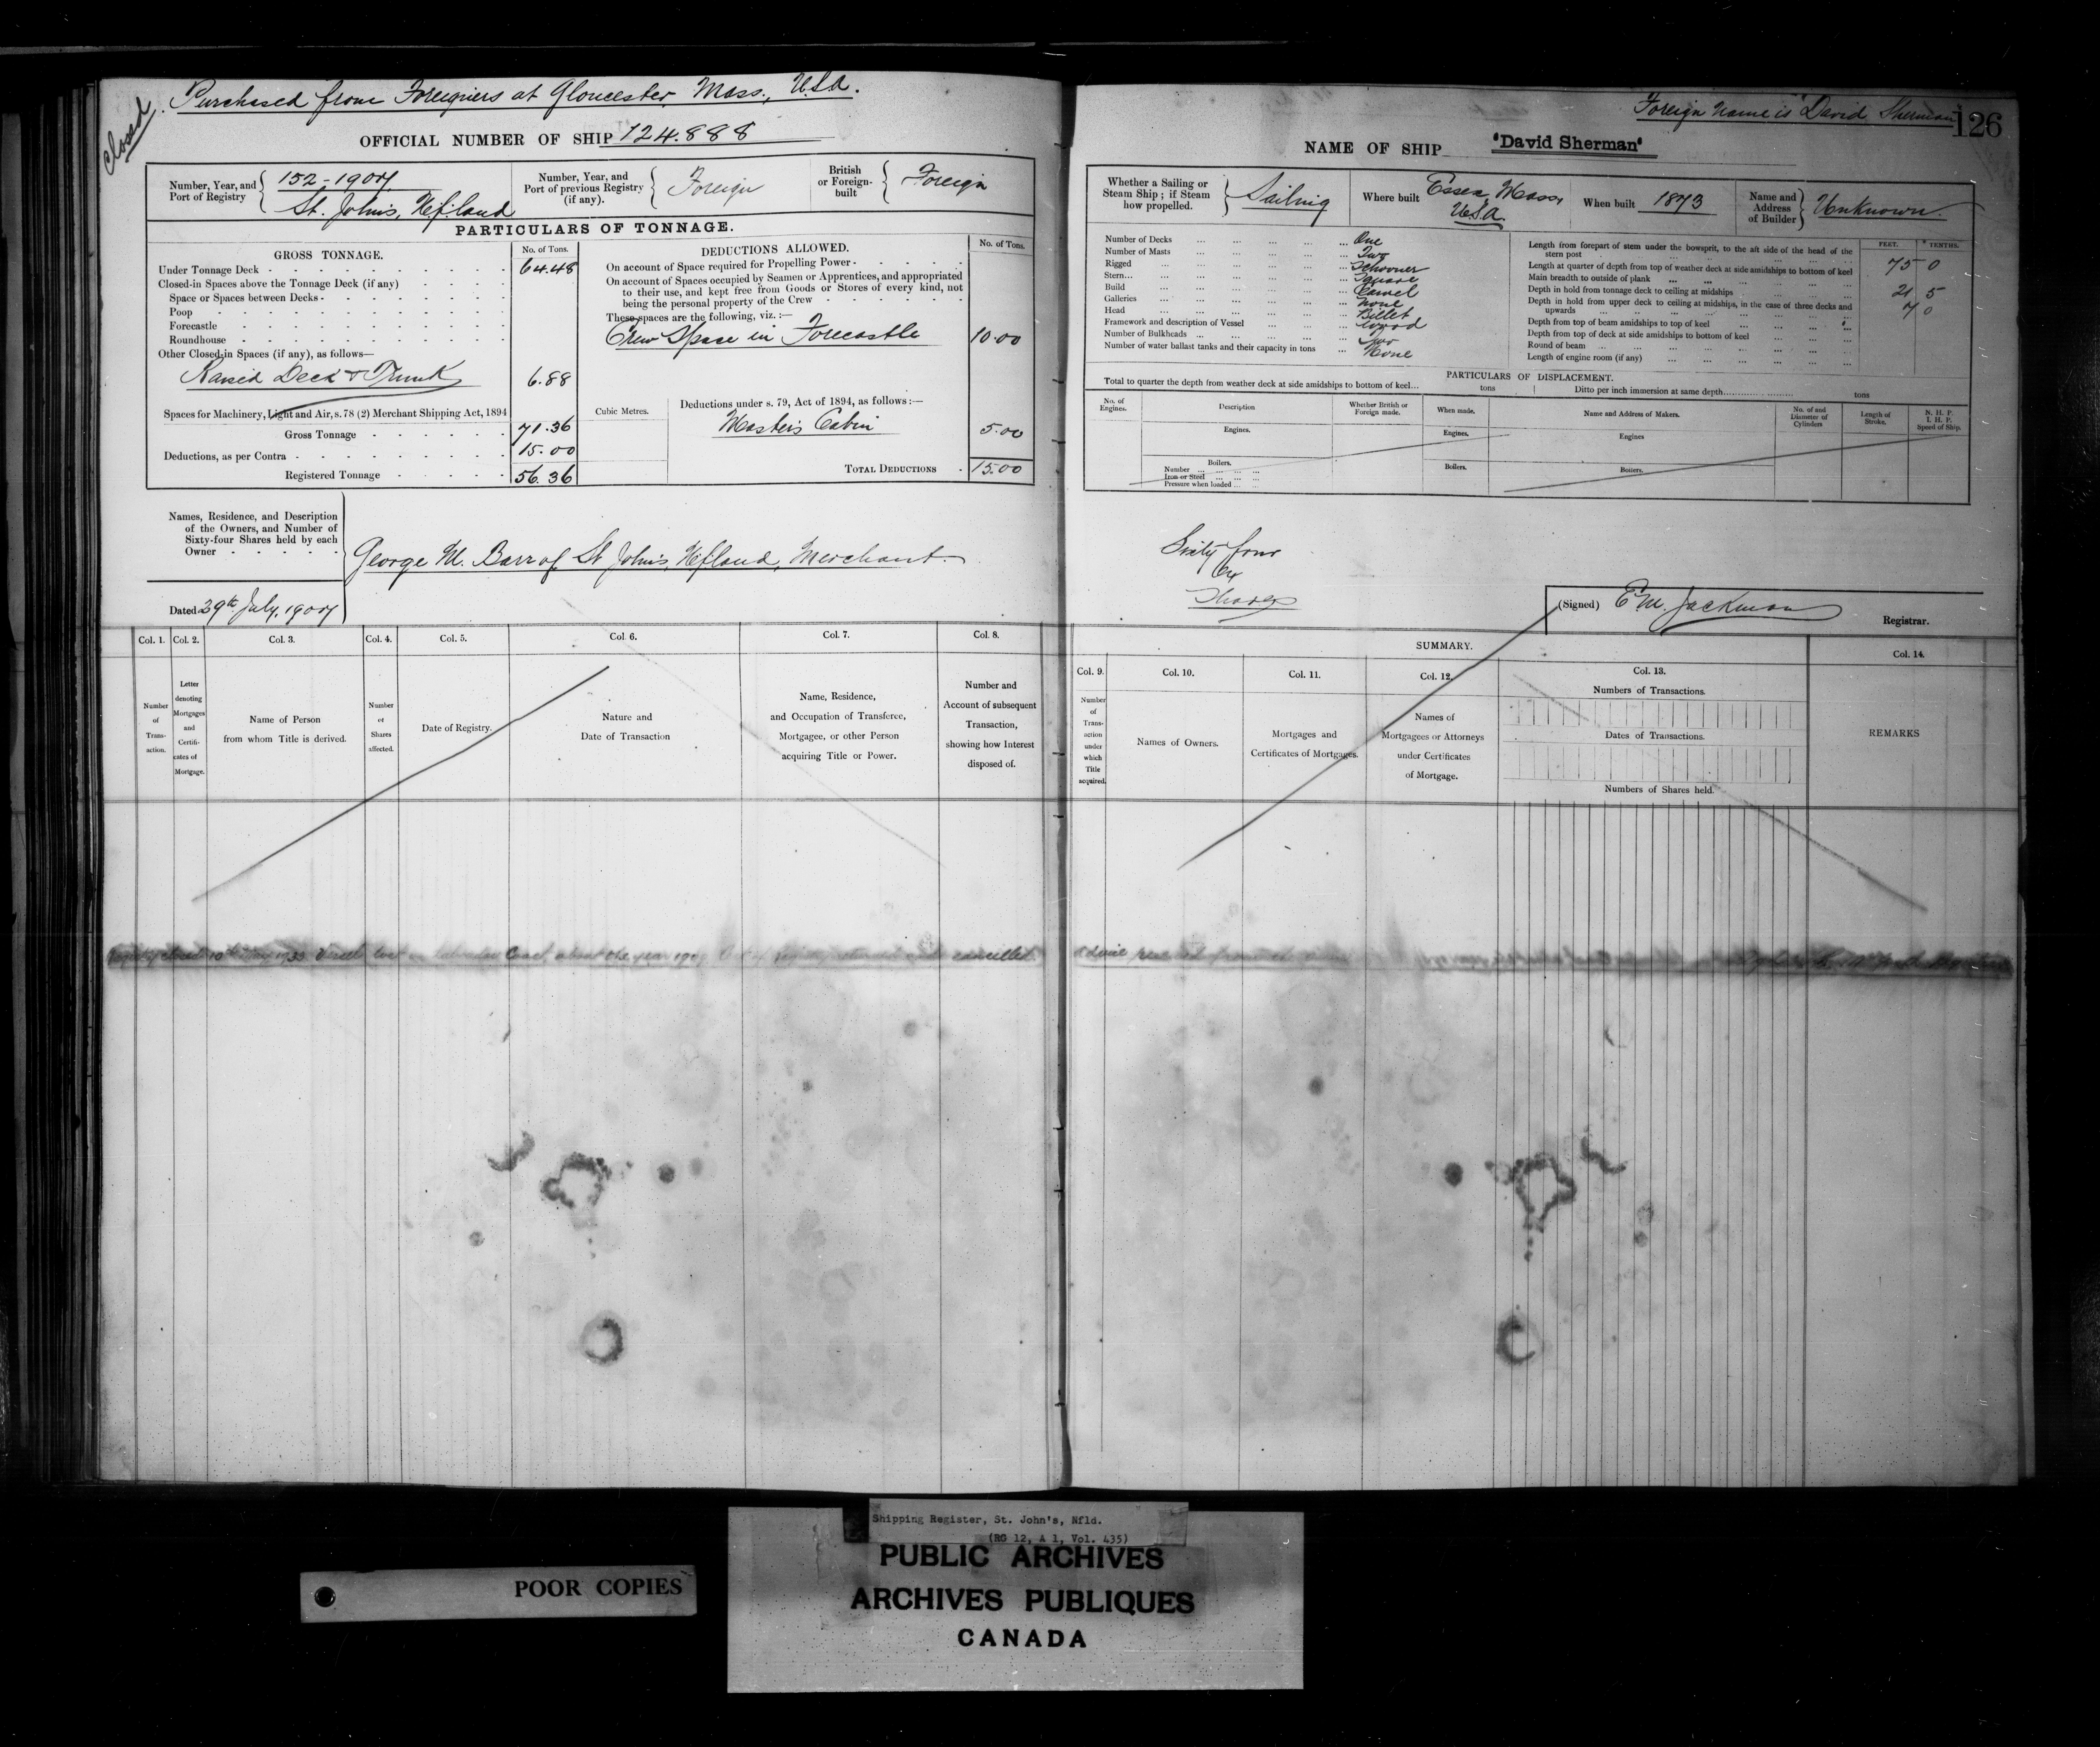 Closed
Purchased from Foreigners at Gloucester, Mass., U.S.A.
OFFICIAL NUMBER OF SHIP 124.888
Number, Year, and Port of Registry 152-1907 St. John's, Nfland
Number, Year, and Port of previous Registry (if any). Foreign
British or Foreign-built Foreign
PARTICULARS OF TONNAGE.
GROSS TONNAGE. No. of Tons.
Under Tonnage Deck 64.48
Closed-in Spaces above the Tonnage Deck (if any)
Space or Spaces between Decks
Poop
Forecastle
Roundhouse
Other Closed-in Spaces (if any), as follows—
Raised Deck & Trunk 6.88
Spaces for Machinery, Light and Air, s. 78 (2) Merchant Shipping Act, 1894
Gross Tonnage 71.36
Deductions, as per Contra 15.00
Registered Tonnage 56.36
DEDUCTIONS ALLOWED. No. of Tons.
On account of Space required for Propelling Power
On account of Spaces occupied by Seamen or Apprentices, and appropriated
to their use, and kept free from Goods or Stores of every kind, not
being the personal property of the Crew
These spaces are the following, viz.:—
Crew Space in Forecastle 10.00
Cubic Metres.
Deductions under s. 79, Act of 1894, as follows:—
Master's Cabin 5.00
TOTAL DEDUCTIONS 15.00
Names, Residence, and Description
of the Owners, and Number of
Sixty-four Shares held by each
Owner
George M. Barr of St John's, Nfland, Merchant.
Dated 29th July, 1907
Col. 1. Col. 2. Col. 3. Col. 4. Col. 5. Col. 6. Col. 7. Col. 8.
Number of Transaction.
Letter denoting Mortgages and Certificates of Mortgage.
Name of Person from whom Title is derived.
Number of Shares affected.
Date of Registry.
Nature and Date of Transaction
Name, Residence, and Occupation of Transferee, Mortgagee, or other Person acquiring Title or Power.
Number and Account of subsequent Transaction, showing how Interest disposed of.
Foreign Name is "David Sherman"
126
NAME OF SHIP "David Sherman"
Whether a Sailing or Steam Ship; if Steam how propelled. Sailing
Where built Essex, Mass, U.S.A.
When built 1873
Name and Address of Builder Unknown.
Number of Decks One
Number of Masts Two
Rigged Schooner
Stern Square
Build Carvel
Galleries None
Head Billet
Framework and description of Vessel Wood
Number of Bulkheads Two
Number of water ballast tanks and their capacity in tons None
FEET. TENTHS.
Length from forepart of stem under the bowsprit, to the aft side of the head of the
stern post 75 0
Length at quarter of depth from top of weather deck at side amidships to bottom of keel
Main breadth to outside of plank 21 5
Depth in hold from tonnage deck to ceiling at midships 7 0
Depth in hold from upper deck to ceiling at midships, in the case of three decks and
upwards
Depth from top of beam amidships to top of keel
Depth from top of deck at side amidships to bottom of keel
Round of beam
Length of engine room (if any)
PARTICULARS OF DISPLACEMENT.
Total to quarter the depth from weather deck at side amidships to bottom of keel tons
Ditto per inch immersion at same depth tons
No. of Engines.
Description
Whether British or Foreign made.
When made.
Name and Address of Makers.
No. of and Diameter of Cylinders
Length of Stroke.
N. H. P. I. H. P. Speed of Ship.
Engines. Engines. Engines
Boilers. Boilers. Boilers.
Number
Iron or Steel
Pressure when loaded
Sixty four
Shares
(Signed) E M. Jackman
Registrar.
SUMMARY.
Col. 9. Col. 10. Col. 11. Col. 12. Col. 13. Col. 14.
Number of Transaction under which Title acquired.
Names of Owners.
Mortgages and Certificates of Mortgages.
Names of Mortgagees or Attorneys under Certificates of Mortgage.
Numbers of Transactions.
Dates of Transactions.
Numbers of Shares held.
REMARKS
Registry closed 10th May 1933 Vessel lost on Labrador Coast about the year cancelled.
POOR COPIES
Shipping Register, St. John's, Nfld.
(RG 12, A 1, Vol. 435)
PUBLIC ARCHIVES
ARCHIVES PUBLIQUES
CANADA